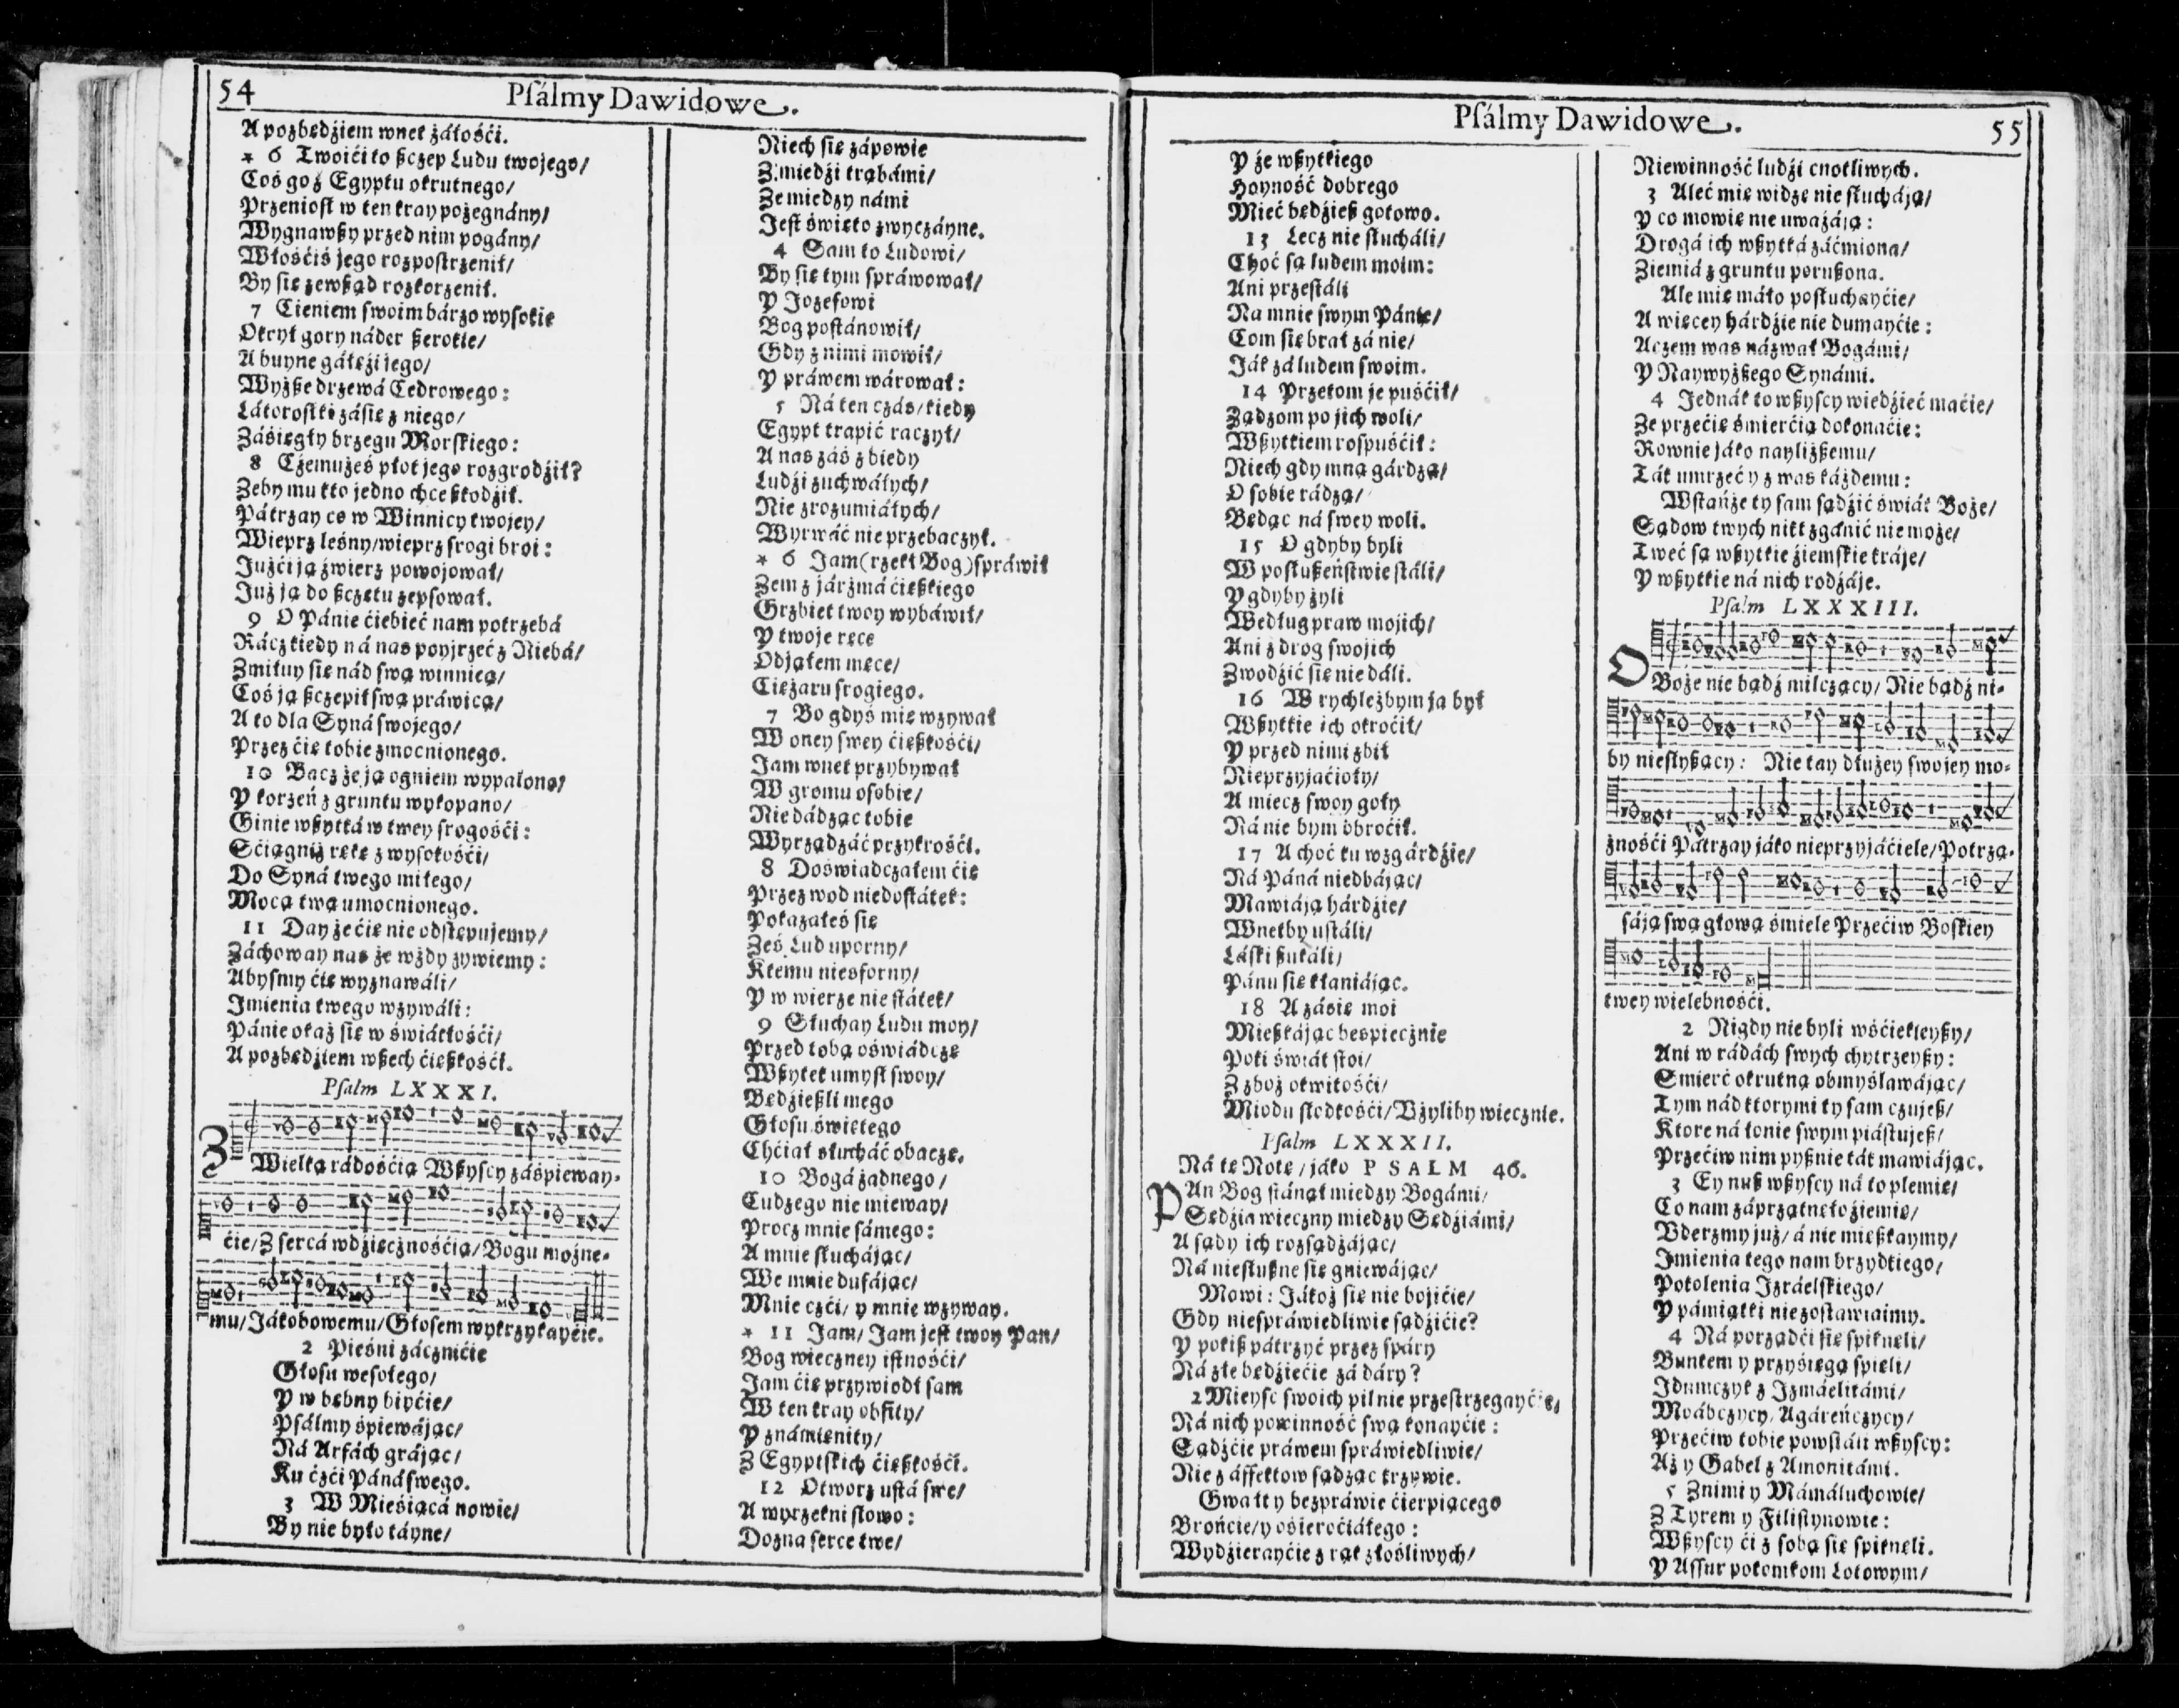 54
Psálmy Dawidowe.
A pozbędźiem wnet żáłośći.
* 6 Twoići to szczep Ludu twojego/
Coś go z Egyptu okrutnego/
Przeniosł w ten kray pożegnány/
Wygnawszy przed nim pogány/
Włośćiś jego rozpostrzenił/
By się zewsząd rozkorzenił.
7 Cieniem swoim bárzo wysokie
Okrył gory náder szerokie/
A buyne gáłęźi jego/
Wyższe drzewá Cedrowego:
Látorostki zásię z niego/
Zásięgły brzegu Morskiego:
8 Cżemużeś płot jego rozgrodźił?
Zeby mu kto jedno chce szkodźił.
Pátrzay co w Winnicy twojey/
Wieprz leśny/wieprz srogi broi:
Jużći ją źwierz powojował/
Już ją do szczętu zepsował.
9 O Pánie ćiebieć nam potrzebá
Rácz kiedy ná nas poyjrzeć z Niebá/
Zmiłuy się nád swą winnicą/
Coś ją szczepił swą práwicą/
A to dla Syná swojego/
Przez ćię tobie zmocnionego.
10 Bacz że ją ogniem wypalono/
Y korzeń z gruntu wykopano/
Ginie wszytká w twey srogośći:
Sćiągniż rękę z wysokośći/
Do Syná twego miłego/
Mocą twą umocnionego.
11 Day że ćię nie odstępujemy/
Záchoway nas że wżdy zywiemy:
Abysmy ćię wyznawáli/
Imienia twego wzywáli:
Pánie okaż się w świátłośći/
A pozbędźiem wszech ćięszkośći.
Psalm LXXXI.
Z Wielką rádośćią Wszyscy záśpieway-
ćie/Z sercá wdźięcznośćią/Bogu możne-
mu/Jákobowemu/Głosem wykrzykayćie.
2 Pieśni zácznićie
Głosu wesołego/
Y w bębny biyćie/
Psálmy śpiewájąc/
Ná Arfách grájąc/
Ku czći Páná swego.
3 W Mieśiącá nowie/
By nie było táyne/
Niech się zápowie
Z miedźi trąbámi/
Ze miedzy námi
Jest święto zwyczáyne.
4 Sam to Ludowi/
By się tym spráwował/
Y Jozefowi
Bog postánowił/
Gdy z nimi mowił/
Y práwem wárował:
5 Ná ten czás/kiedy
Egypt trapić raczył/
A nas záś z biedy
Ludźi zuchwáłych/
Nie zrozumiáłych/
Wyrwáć nie przebaczył.
* 6 Jam (rzekł Bog) spráwił
Zem z járzmá ćięszkiego
Grzbiet twoy wybáwił/
Y twoje ręce
Odjąłem męce/
Ciężaru srogiego.
7 Bo gdyś mię wzywał
W oney swey ćięszkośći/
Jam wnet przybywał
W gromu osobie/
Nie dádząc tobie
Wyrządzáć przykrośći.
8 Doświadczałem ćię
Przez wod niedostátek:
Pokazałeś się
Ześ Lud uporny/
Ktemu niesforny/
Y w wierze nie státek/
9 Słuchay Ludu moy/
Przed tobą oświádczę
Wszytek umysł swoy/
Będźieszli mego
Głosu świętego
Chćiał słucháć obaczę.
10 Bogá żadnego/
Cudzego nie mieway/
Procz mnie sámego:
A mnie słuchájąc/
We mnie dufájąc/
Mnie czći/ y mnie wzyway.
* 11 Jam/ Jam jest twoy Pan/
Bog wieczney istnośći/
Jam ćię przywiodł sam
W ten kray obfity/
Y známienity/
Z Egyptskich ćięszkośći.
12 Otworz ustá swe/
A wyrzekni słowo:
Dozna serce twe/
Psálmy Dawidowe.
55
Y że wszytkiego
Hoyność dobrego
Mieć będźiesz gotowo.
13 Lecz nie słucháli/
Choć są ludem moim:
Ani przestáli
Na mnie swym Pánie/
Com się brał zá nie/
Ják zá ludem swoim.
14 Przetom je puśćił/
Ządzom po jich woli/
Wszytkiem rospuśćił:
Niech gdy mną gárdzą/
O sobie rádzą/
Będąc ná swey woli.
15 O gdyby byli
W posłuszeństwie stáli/
Y gdyby żyli
Według praw mojich/
Ani z drog swojich
Zwodźić się nie dáli.
16 W rychleżbym ja był
Wszytkie ich okroćił/
Y przed nimi zbił
Nieprzyjaćioły/
A miecz swoy goły
Ná nie bym obroćił.
17 A choć tu wzgárdźie/
Ná Páná niedbájąc/
Mawiáją hárdzie/
Wnetby ustáli/
Łáski szukáli/
Pánu się kłaniájąc.
18 A zásię moi
Mieszkájąc bespiecznie
Poki świát stoi/
Z zboż okwitośći/
Miodu słodkośći/Vżyliby wiecznie.
Psalm LXXXII.
Ná tę Notę/jáko PSALM 46.
PAn Bog stánął miedzy Bogámi/
Sędźia wieczny miedzy Sędźiámi/
A sądy ich rozsądzájąc/
Ná niesłuszne się gniewájąc/
Mowi: Jákoż się nie bojićie/
Gdy niespráwiedliwie sądźićie?
Y pokisz pátrzyć przez spáry
Ná złe będźiećie zá dáry?
2 Mieysc swoich pilnie przestrzegayćie,
Ná nich powinność swą konayćie:
Sądźćie práwem spráwiedliwie/
Nie z áffektow sądząc krzywie.
Gwałt y bezpráwie ćierpiącego
Brońcie/y ośieroćiáłego:
Wydźierayćie z rąk złośliwych/
Niewinność ludźi cnotliwych.
3 Aleć mię widzę nie słucháją/
Y co mowię nie uważáją:
Drogá ich wszytká záćmiona/
Ziemiá z gruntu poruszona.
Ale mię máło posłuchayćie/
A więcey hárdźie nie dumayćie:
Aczem was názwał Bogámi/
Y Naywyższego Synámi.
4 Jednák to wszyscy wiedźieć maćie/
Ze przećię śmierćią dokonaćie:
Rownie jáko nayliższemu/
Ták umrzeć y z was káżdemu:
Wstańże ty sam sądźić świát Boże/
Sądow twych nikt zgánić nie może/
Tweć są wszytkie źiemskie kráje/
Y wszytkie ná nich rodzáje.
Psalm LXXXIII.
O Boże nie bądź milczący/ Nie bądź ni-
by niesłyszący: Nie tay dłużey swojey mo-
żnośći Pátrzay jáko nieprzyjáćiele/Potrzą-
sáją swą głową śmiele Przećiw Boskiey
twey wielebnośći.
2 Nigdy nie byli wśćiekleyszy/
Ani w rádách swych chytrzeyszy:
Smierć okrutną obmyślawájąc/
Tym nád ktorymi ty sam czujesz/
Ktore ná łonie swym piástujesz/
Przećiw nim pysznie ták mawiájąc.
3 Ey nusz wszyscy ná to plemię/
Co nam záprzątnęło źiemię/
Vderzmy już/ á nie mieszkaymy/
Imienia tego nam brzydkiego/
Pokolenia Izráelskiego/
Y pámiątki nie zostawiaimy.
4 Ná porządći się spiknęli/
Buntem y przyśięgą spięli/
Idumczyk z Izmáelitámi/
Moábczycy/ Agáreńczycy/
Przećiw tobie powstáli wszyscy:
Aż y Gabel z Amonitámi.
5 Z nimi y Mámáluchowie/
Z Tyrem y Filistynowie:
Wszyscy ći z sobą się spiknęli.
Y Assur potomkom Lotowym/